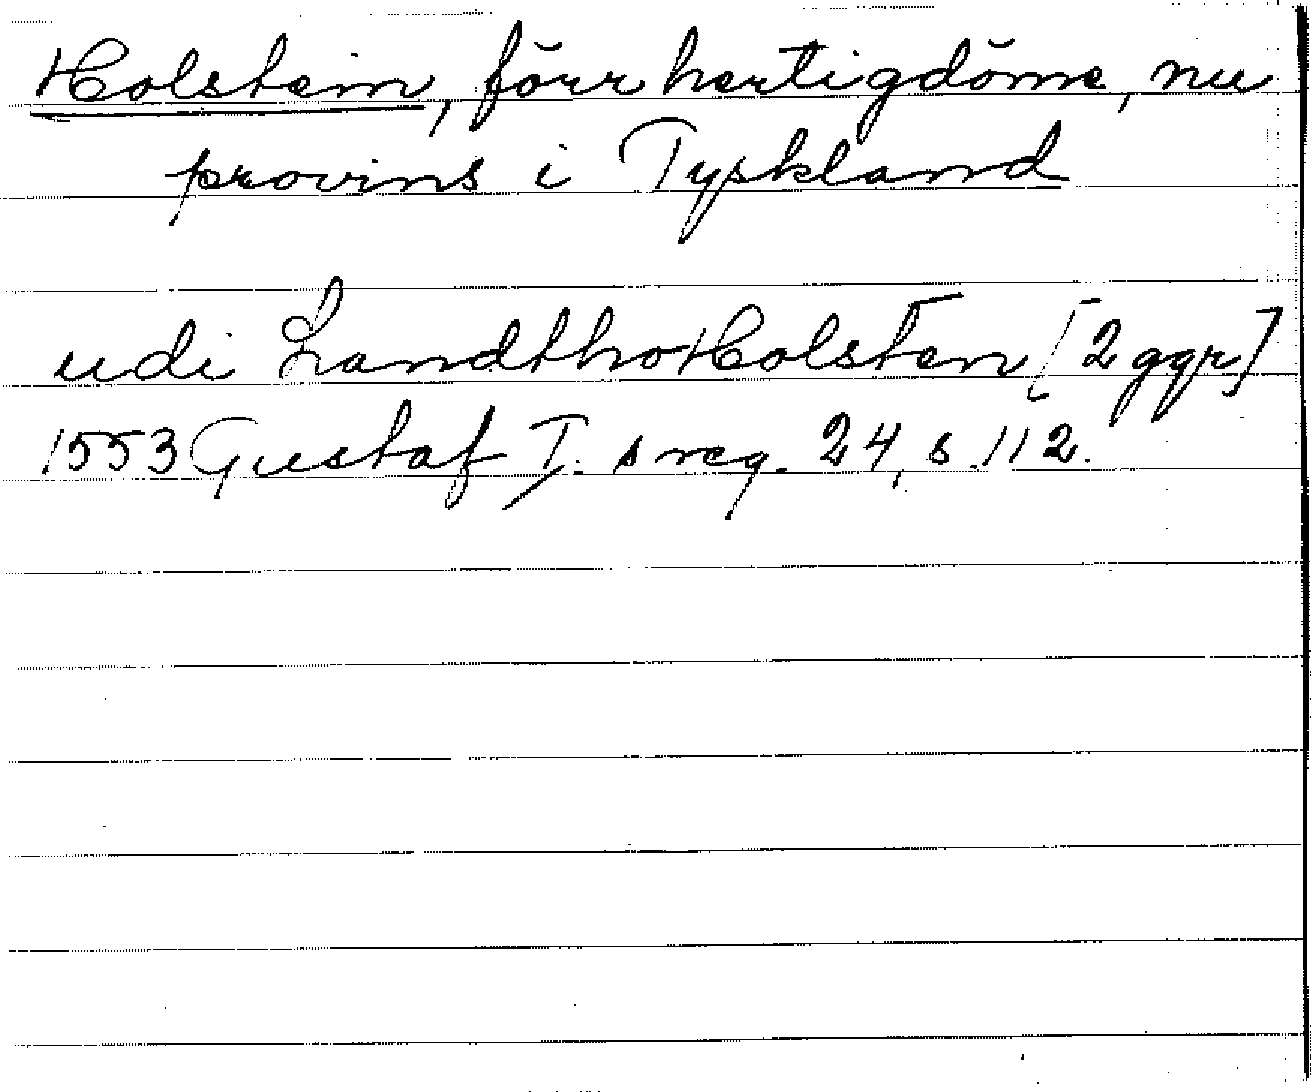 Holstein, förr hertigdöme, nu
provins i Tyskland
udi Landtho Holsten [2 ggr]
1553 Gustaf I:s reg. 24, s. 112.